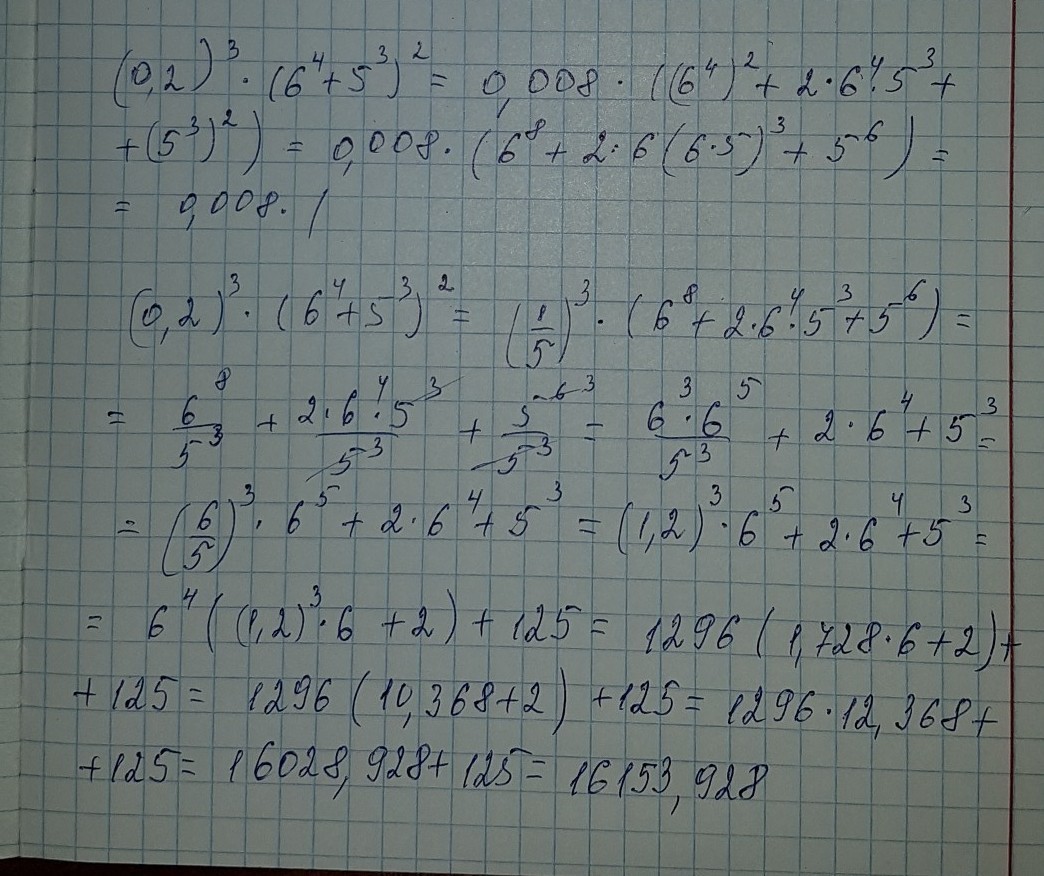 (0,2)³ · (6⁴ + 5³)² = 0,008 · ((6⁴)² + 2 · 6⁴ · 5³ +
+ (5³)²) = 0,008 · (6⁸ + 2 · 6(6 · 5)³ + 5⁶) =
= 0,008 · (
(0,2)³ · (6⁴ + 5³)² = (1/5)³ · (6⁸ + 2 · 6⁴ · 5³ + 5⁶) =
= 6⁸/5³ + 2 · 6⁴ · 5³/5³ + 5⁶ ³/5³ = 6³ · 6⁵/5³ + 2 · 6⁴ + 5³ =
= (6/5)³ · 6⁵ + 2 · 6⁴ + 5³ = (1,2)³ · 6⁵ + 2 · 6⁴ + 5³ =
= 6⁴ ((1,2)³ · 6 + 2) + 125 = 1296 (1,728 · 6 + 2) +
+ 125 = 1296 (10,368 + 2) + 125 = 1296 · 12,368 +
+ 125 = 16028,928 + 125 = 16153,928